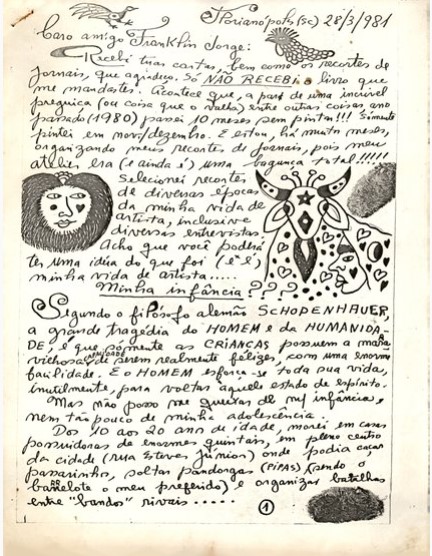 Florianópolis (SC) 28/3/981
Caro amigo Franklin Jorge:
Recebi tuas cartas, bem como os recortes de
jornais, que agradeço. Só NÃO RECEBI o livro que
me mandastes. Acontece que, a par de uma incrível
preguiça (ou coisa que o valha) entre outras coisas ano
passado (1980) passei 10 meses sem pintar!!! Somente
pintei em nov/dezembro. E estou, há muito meses,
organizando meus recortes de jornais, pois meu
atelier era (e ainda é) uma bagunça total!!!!!
Selecionei recortes
de diversas épocas
da minha vida de
artista, inclusive
diversas entrevistas.
Acho que você poderá
ter uma idéia do que foi (e é)
minha vida de artista.....
Minha infância????
Segundo o filósofo alemão SCHOPENHAUER,
a grande tragédia do HOMEM e da HUMANIDA-
DE, é que somente as CRIANÇAS possuem a mara-
vilhosa de serem realmente felizes, com uma enorme
facilidade. E o HOMEM esforça-se toda sua vida,
inutilmente, para voltar àquele estado de espírito.
Mas não posso me queixar de m/ infância,
nem tão pouco de minha adolescência.
Dos 10 aos 20 ano de idade, morei em casas
possuidoras de enormes quintais, em pleno centro
da cidade (rua Esteves Júnior) onde podia caçar
passarinho, soltar pandorgas (PIPAS) (sendo o
o meu preferido) e organizar batalhas
entre "bandos" rivais.....
1